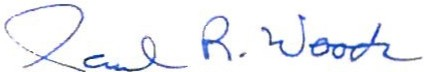 Paul R. Woods